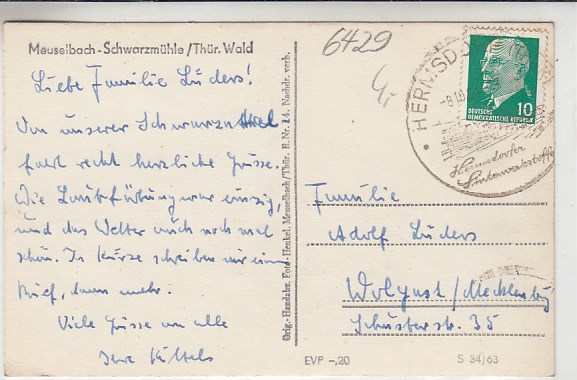 Meuselbach-Schwarzmühle/Thür. Wald
Liebe Familie Lüders!
Von unserer Schwarza
fahrt recht herzliche Grüsse.
Die Laubfärbung war einzig,
und das Wetter auch noch mal
schön. In Kürze schreiben wir einen
Brief, dann mehr.
Viele Grüsse an alle
Ihre
Orig.-Handabz. Foto-Henkel, Meuselbach/Thür. E.Nr. 24. Nachdr. verb.
6429
HERMSD
-8.10
DEUTSCHE
DEMOKRATISCHE REPUBLIK
10
Hermsdorfer
Sinterwerkstoffe
Familie
Adolf Lüders
Wolgast/Mecklenburg
Schusterstr. 35
EVP -,20
S 34/63